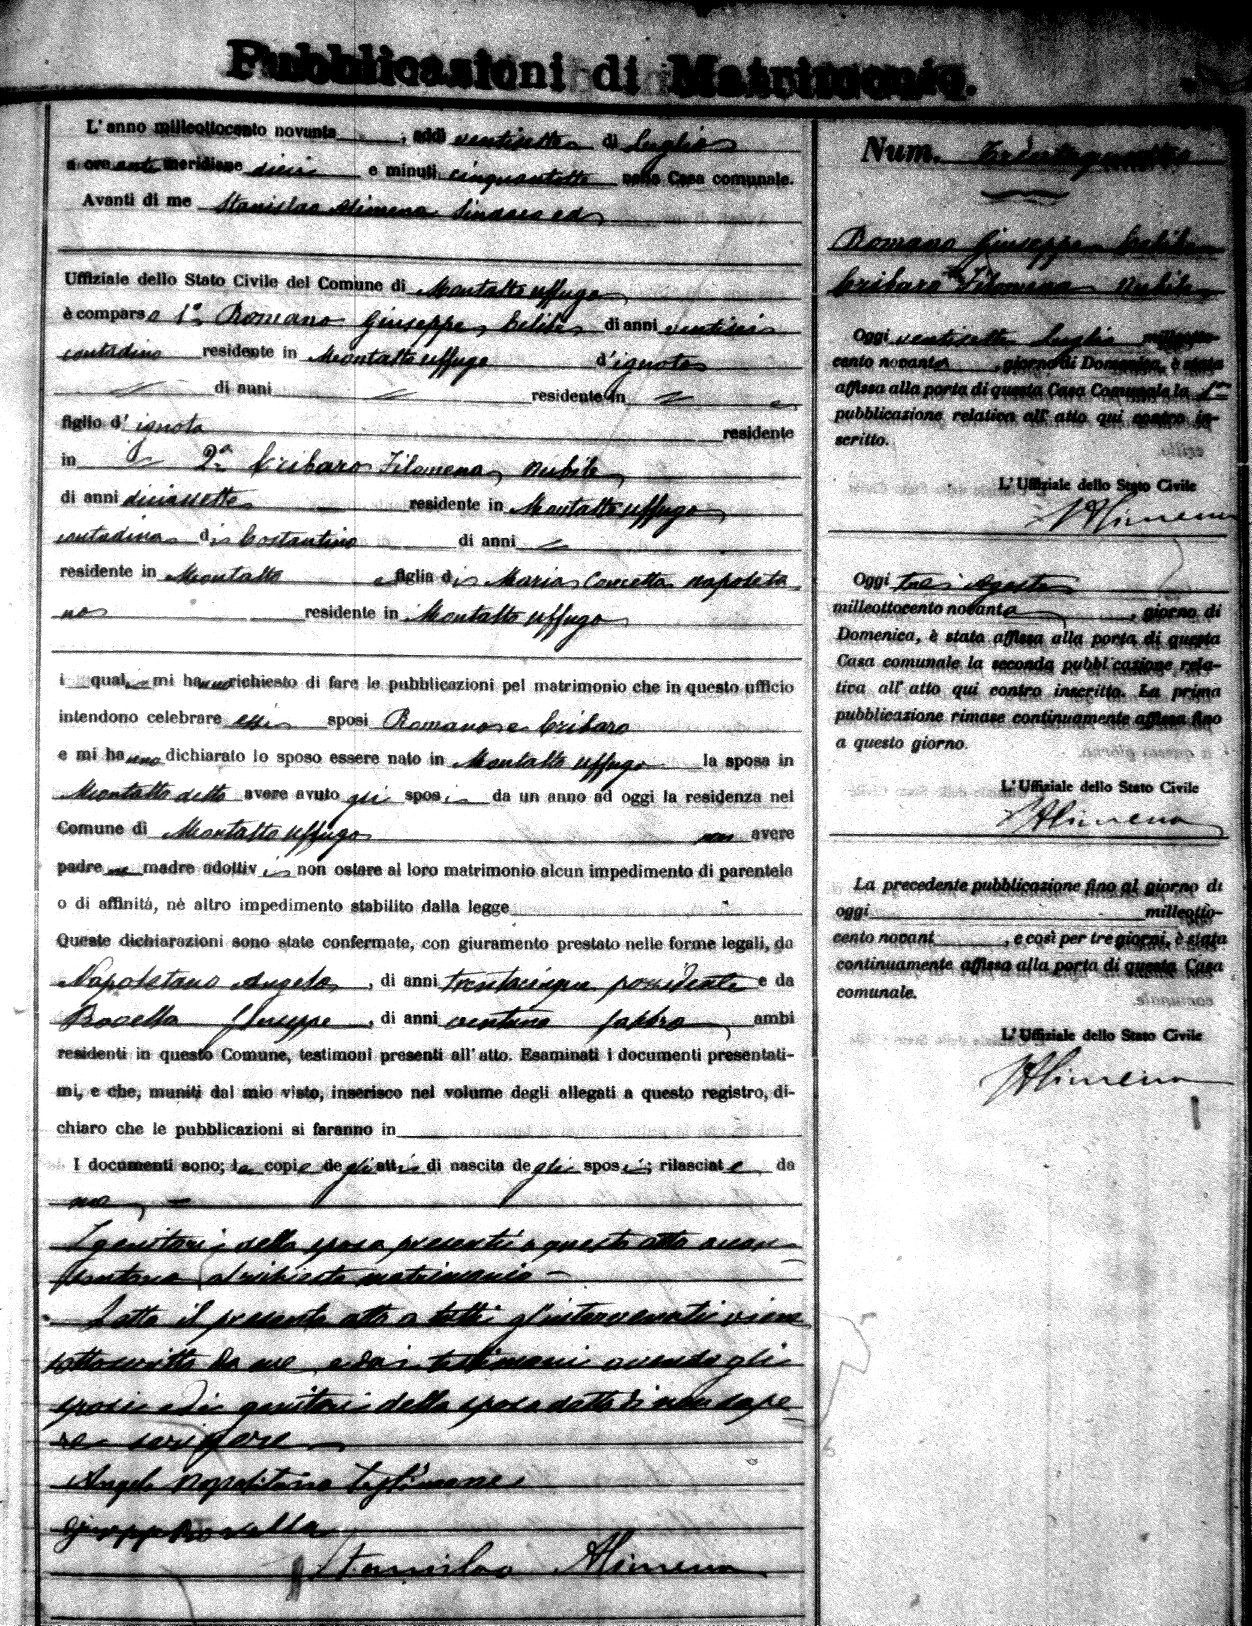 Pubblicazioni di Matrimonio.
L'anno milleottocento novanta, addì ventisette di Luglio
a ore ante meridiane dieci e minuti cinquantotto nella Casa comunale.
Avanti di me Stanislao Alimena Sindaco ed
Uffiziale dello Stato Civile del Comune di Montalto Uffugo
è comparso 1° Romano Giuseppe, celibe, di anni ventisei
contadino residente in Montalto Uffugo d'ignoto
di anni residente in
figlio d'ignota residente
in 2ª Cribaro Filomena, nubile,
di anni diciassette residente in Montalto Uffugo
contadina di Costantino di anni
residente in Montalto e figlia di Maria Concetta Napoleta
no residente in Montalto Uffugo
i quali mi hanno richiesto di fare le pubblicazioni pel matrimonio che in questo ufficio
intendono celebrare essi sposi Romano e Cribaro
e mi hanno dichiarato lo sposo essere nato in Montalto Uffugo la sposa in
Montalto detto avere avuto gli sposi da un anno ad oggi la residenza nel
Comune di Montalto Uffugo non avere
padre ne madre adottivi non ostare al loro matrimonio alcun impedimento di parentela
o di affinità, nè altro impedimento stabilito dalla legge
Queste dichiarazioni sono state confermate, con giuramento prestato nelle forme legali, da
Napoletano Angelo, di anni trentacinque possidente e da
Rovella Giuseppe, di anni ventuno fabbro, ambi
residenti in questo Comune, testimoni presenti all'atto. Esaminati i documenti presentati-
mi, e che, muniti dal mio visto, inserisco nel volume degli allegati a questo registro, di-
chiaro che le pubblicazioni si faranno in
I documenti sono; le copie degli atti di nascita degli sposi; rilasciate da
me, –
I genitori della sposa presenti a questo atto accon=
sentono al richiesto matrimonio –
Letto il presente atto a tutti gl'intervenuti viene
sottoscritto da me e dai testimoni avendo gli
sposi ed i genitori della sposa detto di non sape=
re scrivere
Angelo Napolitano Testimone
Giuseppe Rovella
Stanislao Alimena
Num. Trentaquattro
Romano Giuseppe celibe
Cribaro Filomena nubile
Oggi ventisette Luglio milleotto-
cento novanta, giorno di Domenica, è stata
affissa alla porta di questa Casa Comunale la 1ª
pubblicazione relativa all'atto qui contro in-
scritto.
L'Uffiziale dello Stato Civile
SAlimena
Oggi tre Agosto
milleottocento novanta, giorno di
Domenica, è stata affissa alla porta di questa
Casa comunale la seconda pubblicazione rela-
tiva all'atto qui contro inscritto. La prima
pubblicazione rimase continuamente affissa fino
a questo giorno.
L'Uffiziale dello Stato Civile
SAlimena
La precedente pubblicazione fino al giorno di
oggi milleotto-
cento novant, e così per tre giorni, è stata
continuamente affissa alla porta di questa Casa
comunale.
L'Uffiziale dello Stato Civile
SAlimena